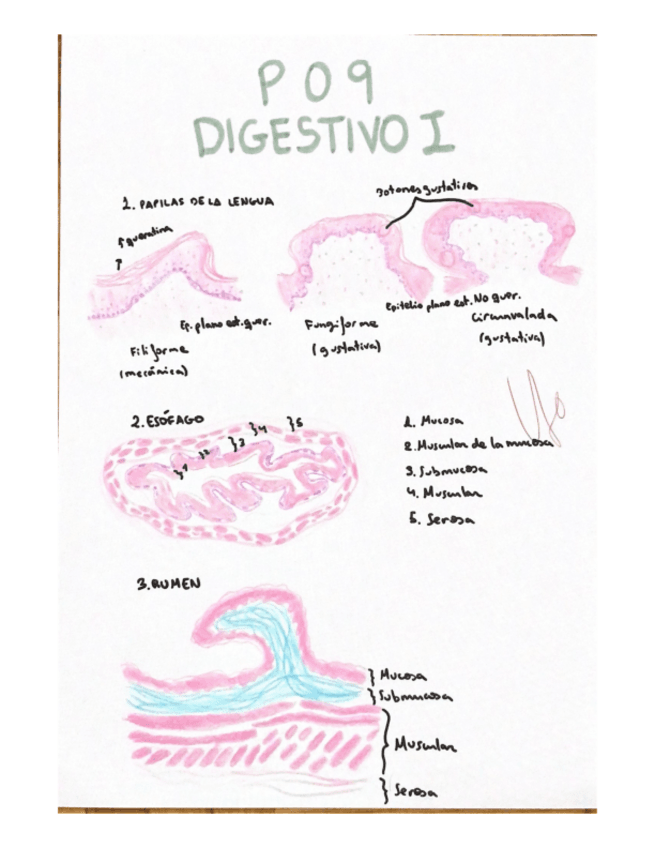 P09
DIGESTIVO I
1. PAPILAS DE LA LENGUA
Botones gustativos
queratina
Ep. plano est. quer.
Epitelio plano est. No quer.
Filiforme
(mecánica)
Fungiforme
(gustativa)
Circunvalada
(gustativa)
2. ESÓFAGO
1
2
3
4
5
1. Mucosa
2. Muscular de la mucosa
3. Submucosa
4. Muscular
5. Serosa
3. RUMEN
Mucosa
Submucosa
Muscular
Serosa